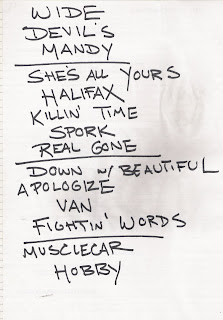 WIDE
DEVIL'S
MANDY
SHE'S ALL YOURS
HALIFAX
KILLIN' TIME
SPORK
REAL GONE
DOWN W/ BEAUTIFUL
APOLOGIZE
VAN
FIGHTIN' WORDS
MUSCLECAR
HOBBY